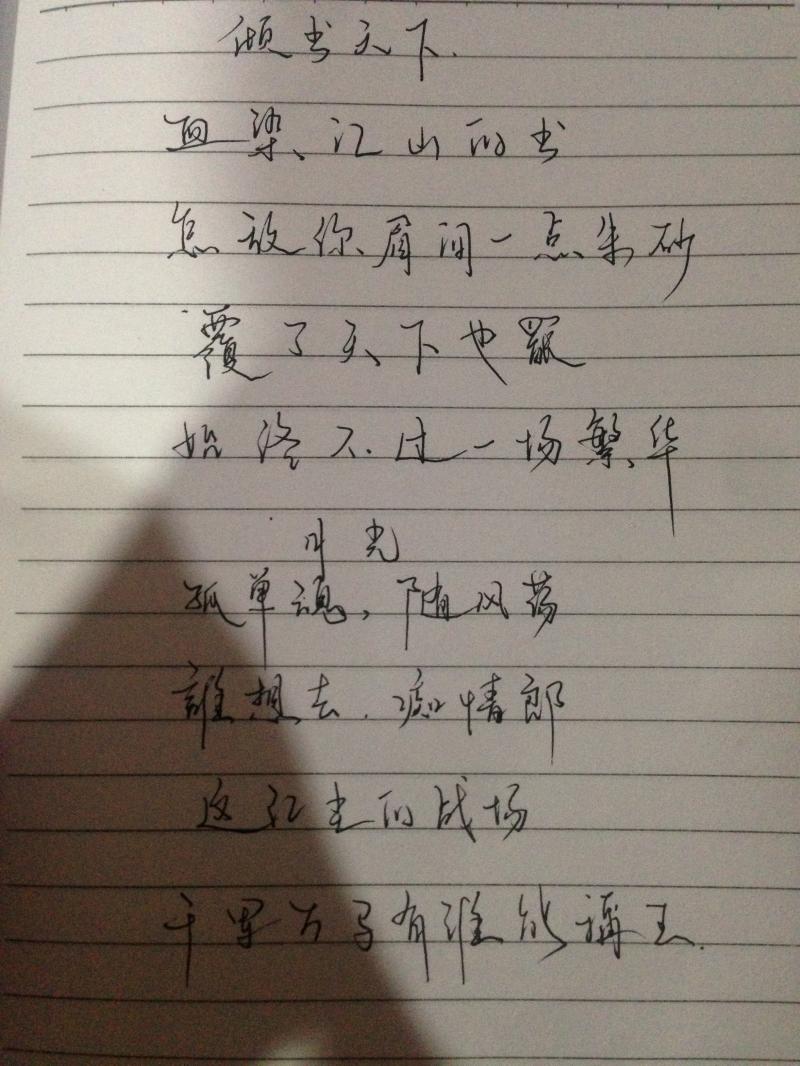 倾书天下.
血染江山的书
怎敌你眉间一点朱砂
覆了天下也罢
始终不过一场繁华
月光
孤单魂,随风荡
誰想去.痴情郎
这红尘的战场
千军万马有谁能稱王.